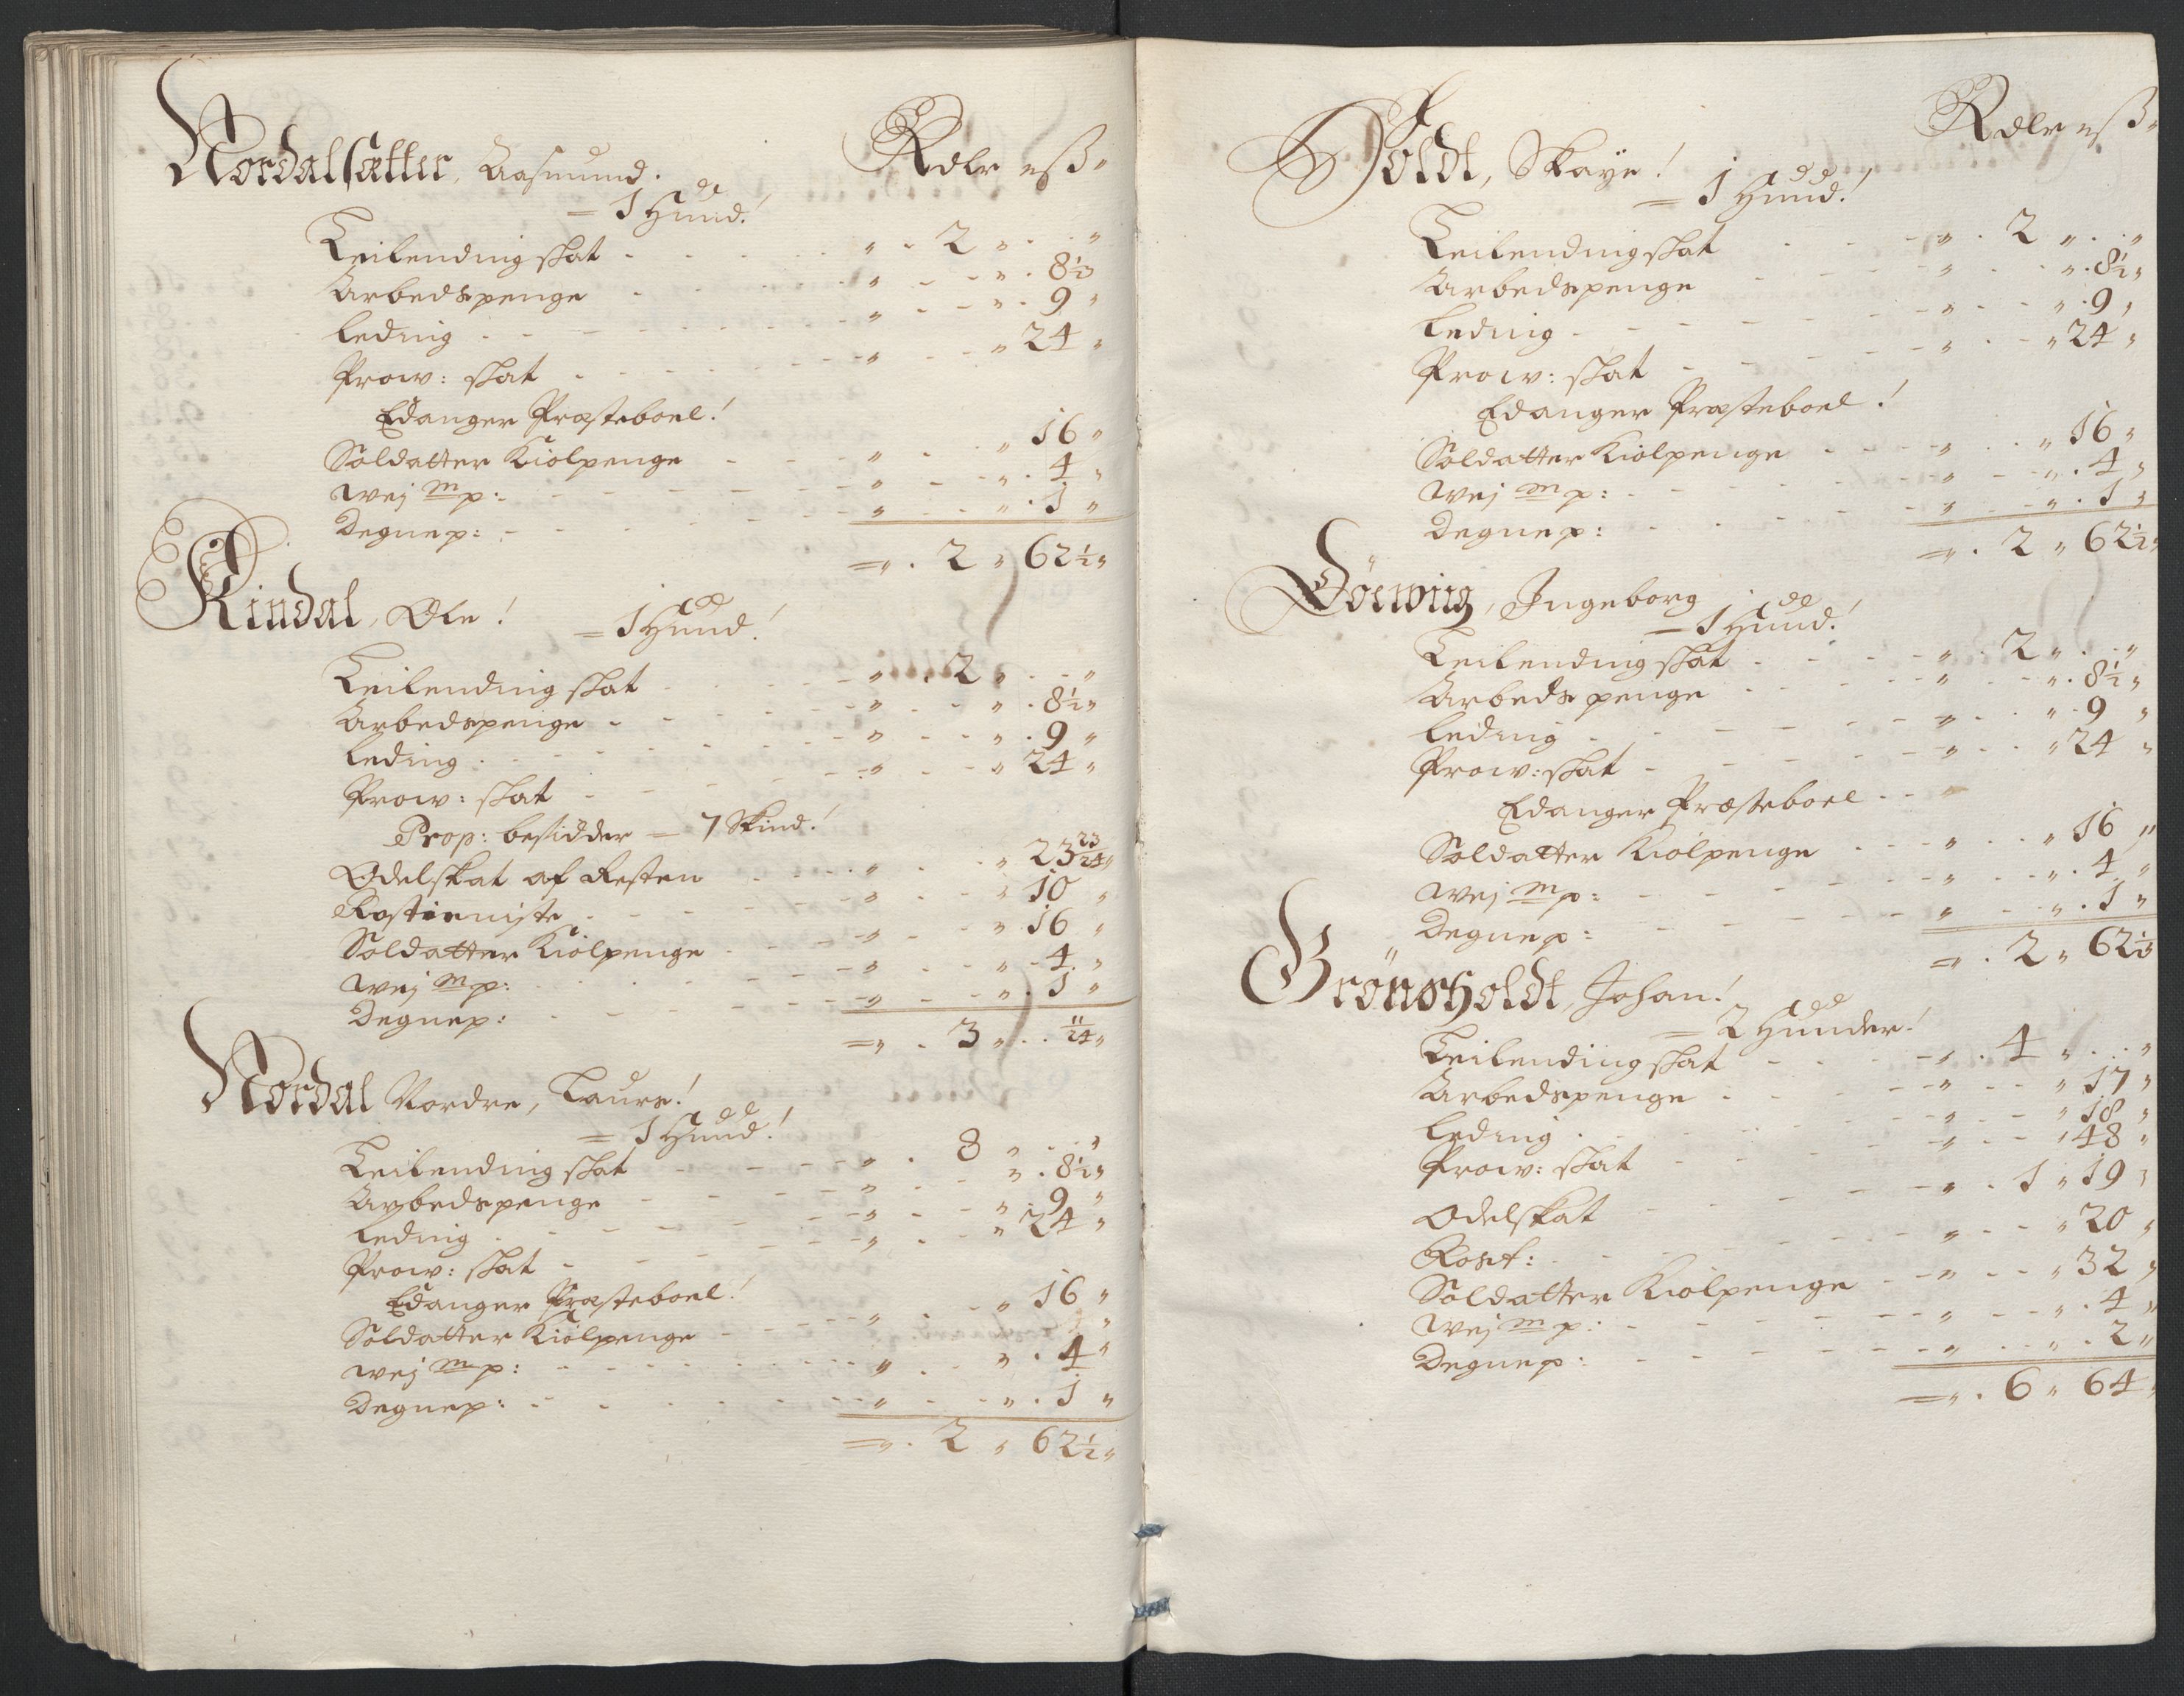 Nordalsætter, Aasmund. Rdlr ß
= 1 Hund!
Leilending skat - - - " - 2 " - "
Arbedspenge - - - " - - " . 8½
Leding - - - " - - " . 9 "
Prow: skat - - - " - - " 24 "
Edanger Præsteboel!
Soldatter Kiolpenge - - - " - " 16 "
Wej mp: - - - " - - " . 4 "
Degnep: - - - " - - " . 1 "
= . 2 " 62½ "
Rindal, Ole! = 1 Hund!
Leilending skat - - - " . 2 " - "
Arbedspenge - - - " - - " . 8½ "
Leding - - - " - - " . 9 "
Prow: skat - - - " - - " 24 "
Prop: besidder = 7 Skind!
Odelskat af Resten - - - " - " 23 23/24 "
Rostieniste - - - " - " 10 "
Soldatter Kiolpenge - - - " - " 16 "
Wej mp: - - - " - - " - 4 "
Degnep: - - - " - - " . 1 "
= " . 3 " . . 11/24 "
Nordal Nordre, Laurs!
= 1 Hund!
Leilending skat - - - " . 8 " - "
Arbedspenge - - - " - - " . 8½ "
Leding - - - " - - " 9 "
Prow: skat - - - " - - " 24 "
Edanger Præsteboel!
Soldatter Kiolpenge - - - " - " 16 "
Wej mp: - - - " - - " . 4 "
Degnep: - - - " - - " . 1 "
= " . 2 " 62½ "
Holdt, Skaye! Rdlr ß
= 1 Hund!
Leilending skat - - - " . 2 " . "
Arbedspenge - - - " - - " . 8½ "
Leding - - - " - - " . 9 "
Prow: skat - - - " - - " 24 "
Edanger Præsteboel!
Soldatter Kiolpenge - - - " - " 16 "
Wej mp: - - - " - - " . 4 "
Degnep: - - - " - - " . 1 "
= " . 2 " 62½ "
Ingeborg
= 1 Hund!
Leilending skat - - - " . 2 " . "
Arbeds penge - - - " - - " . 8½ "
Leding - - - " - - " . 9 "
Prow: skat - - - " - - " 24 "
Edanger Præsteboel - -
Soldatter Kiolpenge - - - " - " 16 "
Wej mp: - - - " - - " . 4 "
Degnep: - - - " - - " . 1 "
= " . 2 " 62½
Grönsholdt, Johan!
= 2 Hunder!
Leilending skat - - - " . 4 " . "
Arbedspenge - - - " - - " 17 "
Leding - - - " - - " 18 "
Prow: skat - - - " - - " 48 "
Odelskat - - - " . 1 " 19 "
Rost: - - - " - - " 20 "
Soldatter Kiolpenge - - - " - - " 32 "
Wej mp: - - - " - - " . 4 "
Degnep: - - - " - - " . 2 "
= " . 6 " 64 "